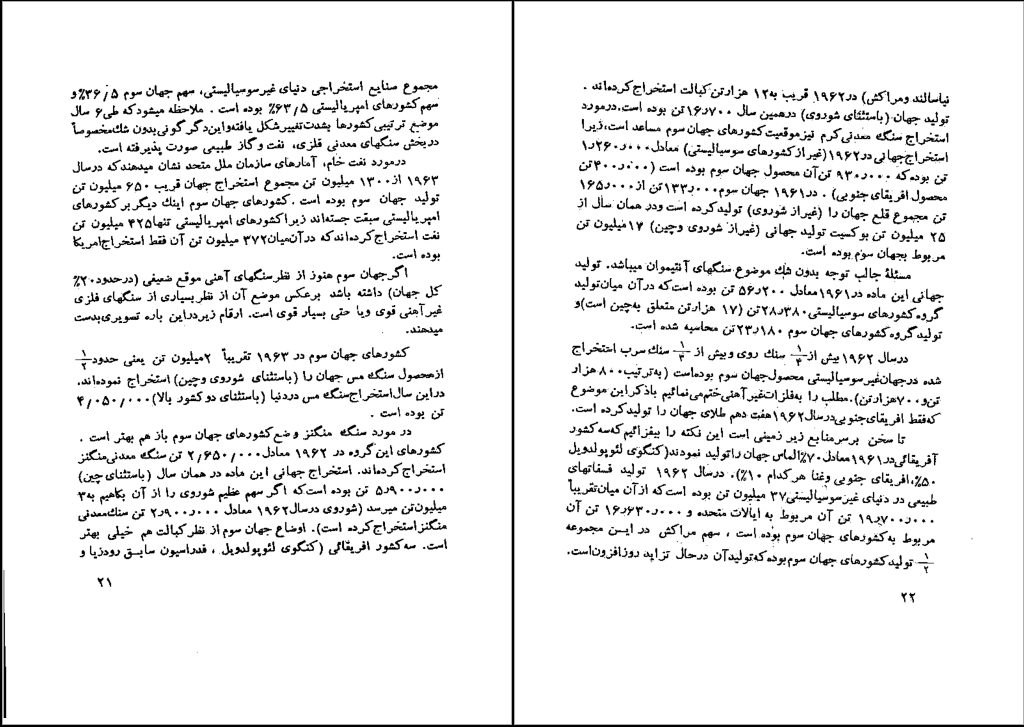 مجموع صنایع استخراجی دنیای غیرسوسیالیستی، سهم جهان سوم ۳۶/۵٪ و
سهم کشورهای امپریالیستی ۶۳/۵٪ بوده است . ملاحظه میشود که طی ۶ سال
موضع ترتیبی کشورها بشدت تغییر شکل یافته و این دگرگونی بدون شك مخصوصاً
در بخش سنگهای معدنی فلزی، نفت و گاز طبیعی صورت پذیرفته است.
در مورد نفت خام، آمارهای سازمان ملل متحد نشان میدهند که در سال
۱۹۶۳ از ۱۳۰۰ میلیون تن مجموع استخراج جهان قریب ۶۵۰ میلیون تن
تولید جهان سوم بوده است . کشورهای جهان سوم اینك دیگر بر کشورهای
امپریالیستی سبقت جسته‌اند زیرا کشورهای امپریالیستی تنها ۴۲۵ میلیون تن
نفت استخراج کرده‌اند که در آن میان ۳۷۲ میلیون تن آن فقط استخراج امریکا
بوده است .
اگر جهان سوم هنوز از نظر سنگهای آهنی موقع ضعیفی (در حدود ۲۰٪
کل جهان) داشته باشد برعکس موضع آن از نظر بسیاری از سنگهای فلزی
غیر آهنی قوی ویا حتی بسیار قوی است. ارقام زیر در این باره تصویری بدست
میدهند.
کشورهای جهان سوم در ۱۹۶۳ تقریباً ۲ میلیون تن یعنی حدود ۱/۲
از محصول سنگ مس جهان را (باستثنای شوروی وچین) استخراج نموده‌اند.
در این سال استخراج سنگ مس در دنیا (باستثنای دو کشور بالا) ۴/۰۵۰/۰۰۰
تن بوده است .
در مورد سنگ منگنز وضع کشورهای جهان سوم باز هم بهتر است .
کشورهای این گروه در ۱۹۶۲ معادل ۲/۶۵۰/۰۰۰ تن سنگ معدنی منگنز
استخراج کرده‌اند. استخراج جهانی این ماده در همان سال (باستثنای چین)
۵ر۹۰۰ر۰۰۰ تن بوده است که اگر سهم عظیم شوروی را از آن بکاهیم به ۳
میلیون تن میرسد (شوروی در سال ۱۹۶۲ معادل ۲ر۹۰۰ر۰۰۰ تن سنگ معدنی
منگنز استخراج کرده است). اوضاع جهان سوم از نظر کبالت هم خیلی بهتر
است. سه کشور افریقائی (کنگوی لئوپولدویل ، فدراسیون سابق رودزیا و
۲۱
نیاسالند ومراکش) در ۱۹۶۲ قریب به ۱۲ هزار تن کبالت استخراج کرده‌اند .
تولید جهان (باستثنای شوروی) در همین سال ۱۶ر۷۰۰ تن بوده است. در مورد
استخراج سنگ معدنی کرم نیز موقعیت کشورهای جهان سوم مساعد است، زیرا
استخراج جهانی در ۱۹۶۲ (غیر از کشورهای سوسیالیستی) معادل ۱ر۲۶۰ر۰۰۰
تن بوده که ۹۳۰ر۰۰۰ تن آن محصول جهان سوم بوده است (۴۰۰ر۰۰۰ تن
محصول افریقای جنوبی) . در ۱۹۶۱ جهان سوم ۱۳۳ر۰۰۰ تن از ۱۶۵ر۰۰۰
تن مجموع قلع جهان را (غیر از شوروی) تولید کرده است ودر همان سال از
۲۵ میلیون تن بوکسیت تولید جهانی (غیر از شوروی وچین) ۱۷ میلیون تن
مربوط بجهان سوم بوده است.
مسئلهٔ جالب توجه بدون شك موضوع سنگهای آنتیموان میباشد. تولید
جهانی این ماده در ۱۹۶۱ معادل ۵۶ر۲۰۰ تن بوده است که در آن میان تولید
گروه کشورهای سوسیالیستی ۲۸ر۳۸۰ تن (۱۷ هزار تن متعلق به چین است) و
تولید گروه کشورهای جهان سوم ۲۳ر۱۸۰ تن محاسبه شده است.
در سال ۱۹۶۲ بیش از ۱/۴ سنك روی وبیش از ۱/۳ سنك سرب استخراج
شده در جهان غیر سوسیالیستی محصول جهان سوم بوده است (به ترتیب ۸۰۰ هزار
تن و ۷۰۰ هزار تن). مطلب را به فلزات غیر آهنی ختم می‌نمائیم با ذکر این موضوع
که فقط افریقای جنوبی در سال ۱۹۶۲ هفت دهم طلای جهان را تولید کرده است.
تا سخن بر سر منابع زیر زمینی است این نکته را بیفزائیم که سه کشور
آفریقائی در ۱۹۶۱ معادل ۷۰٪ الماس جهان را تولید نمودند (کنگوی لئوپولدویل
۵۰٪، افریقای جنوبی وغنا هر کدام ۱۰٪). در سال ۱۹۶۲ تولید فسفاتهای
طبیعی در دنیای غیر سوسیالیستی ۳۷ میلیون تن بوده است که از آن میان تقریباً
۱۹ر۷۰۰ر۰۰۰ تن آن مربوط به ایالات متحده و ۱۶ر۶۳۰ر۰۰۰ تن آن
مربوط به کشورهای جهان سوم بوده است ، سهم مراکش در ایـن مجموعه
۱/۲ تولید کشورهای جهان سوم بوده که تولید آن در حال تزاید روز افزون است.
۲۲